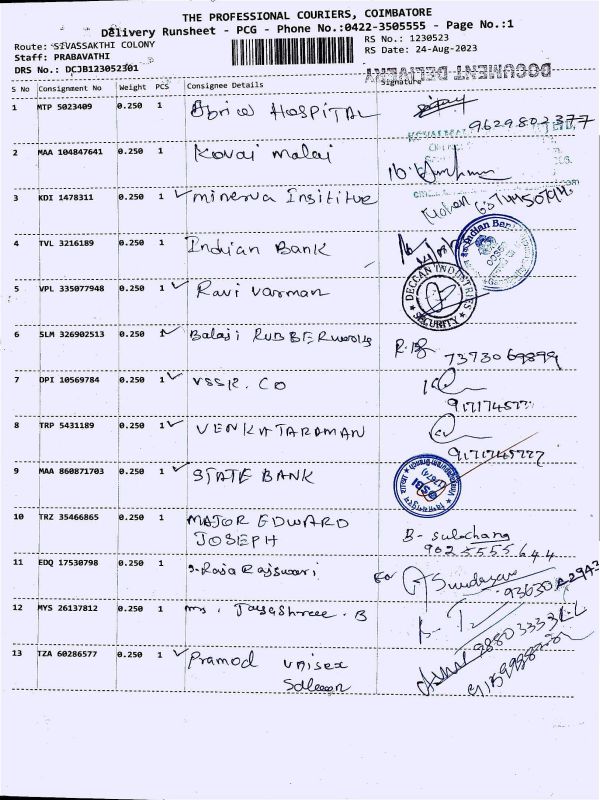 THE PROFESSIONAL COURIERS, COIMBATORE
Delivery Runsheet - PCG - Phone No.:0422-3505555 - Page No.:1
Route: SIVASSAKTHI COLONY
RS No.: 1230523
Staff: PRABAVATHI
RS Date: 24-Aug-2023
DRS No.: DCJB123052301
DOCUMENT DELIVERY
S No Consignment No Weight PCS Consignee Details Signature
1 MTP 5023409 0.250 1 HOSPITAL
9629802377
2 MAA 104847641 0.250 1 Kovai malai
3 KDI 1478311 0.250 1 minerva Institue
4 TVL 3216189 0.250 1 Indian Bank
5 VPL 335077948 0.250 1 Ravi varman
DECCAN INDUSTRIES
SECURITY
6 SLM 326902513 0.250 1 Balaji RUBBERworks
7373069899
7 DPI 10569784 0.250 1 VSSR. CO
8 TRP 5431189 0.250 1 VENKATARAMAN
9 MAA 860871703 0.250 1 STATE BANK
SBI
10 TRZ 35466865 0.250 1 MAJOR EDWARD
JOSEPH
B- Sulochana
9025555644
11 EDQ 17530798 0.250 1 Raja Rajswari
12 MYS 26137812 0.250 1 mrs. Jayashree. B
13 TZA 60286577 0.250 1 Pramod unisex
Saloon